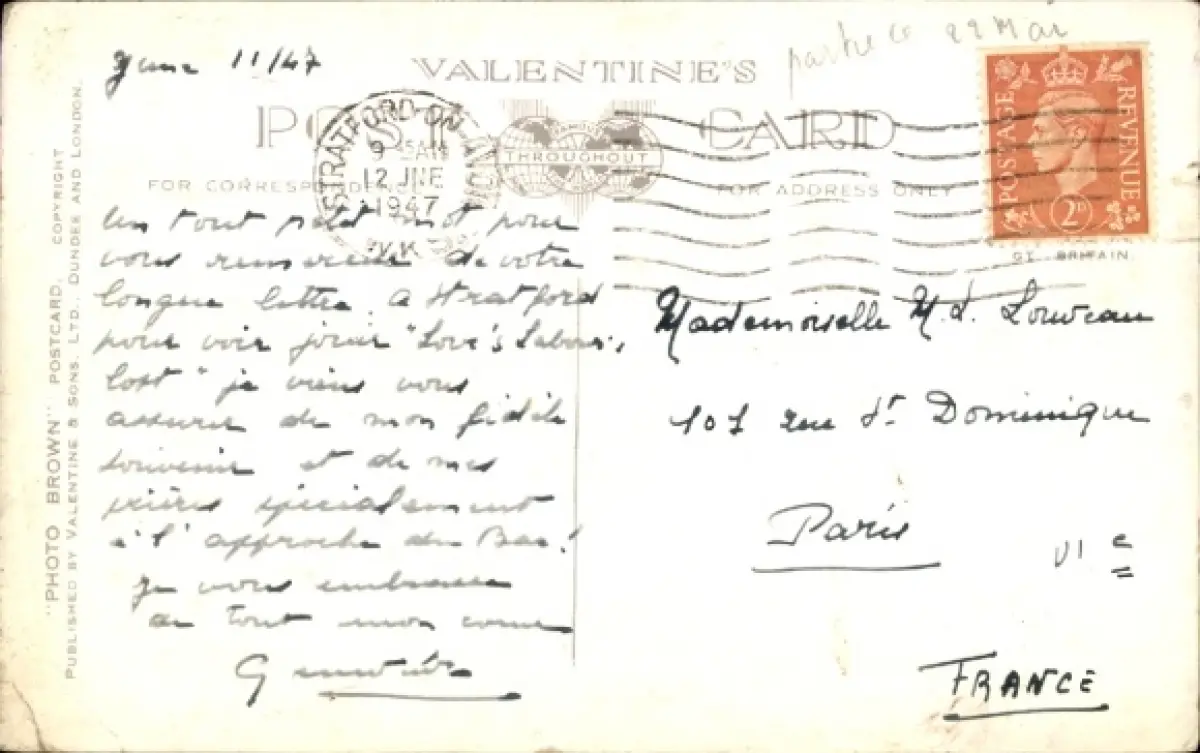 June 11/47
VALENTINE'S
POST CARD
FOR CORRESPONDENCE
FOR ADDRESS ONLY
THROUGHOUT
STRATFORD-ON-AVON
9 15AM
12 JNE
1947
POSTAGE REVENUE
2D
GT. BRITAIN
22 Mai
Un tout petit mot pour
vous remercier de votre
longue lettre. A Stratford
pour voir jouer "Love's Labour,
lost" je viens vous
assurer de mon fidèle
souvenir et de mes
prières spécialement
à l'approche du Bac!
Je vous embrasse
de tout mon coeur
Mademoiselle M. L. Louveau
101 rue St Dominique
Paris
VIe
FRANCE
"PHOTO BROWN" POSTCARD. COPYRIGHT
PUBLISHED BY VALENTINE & SONS. LTD., DUNDEE AND LONDON.